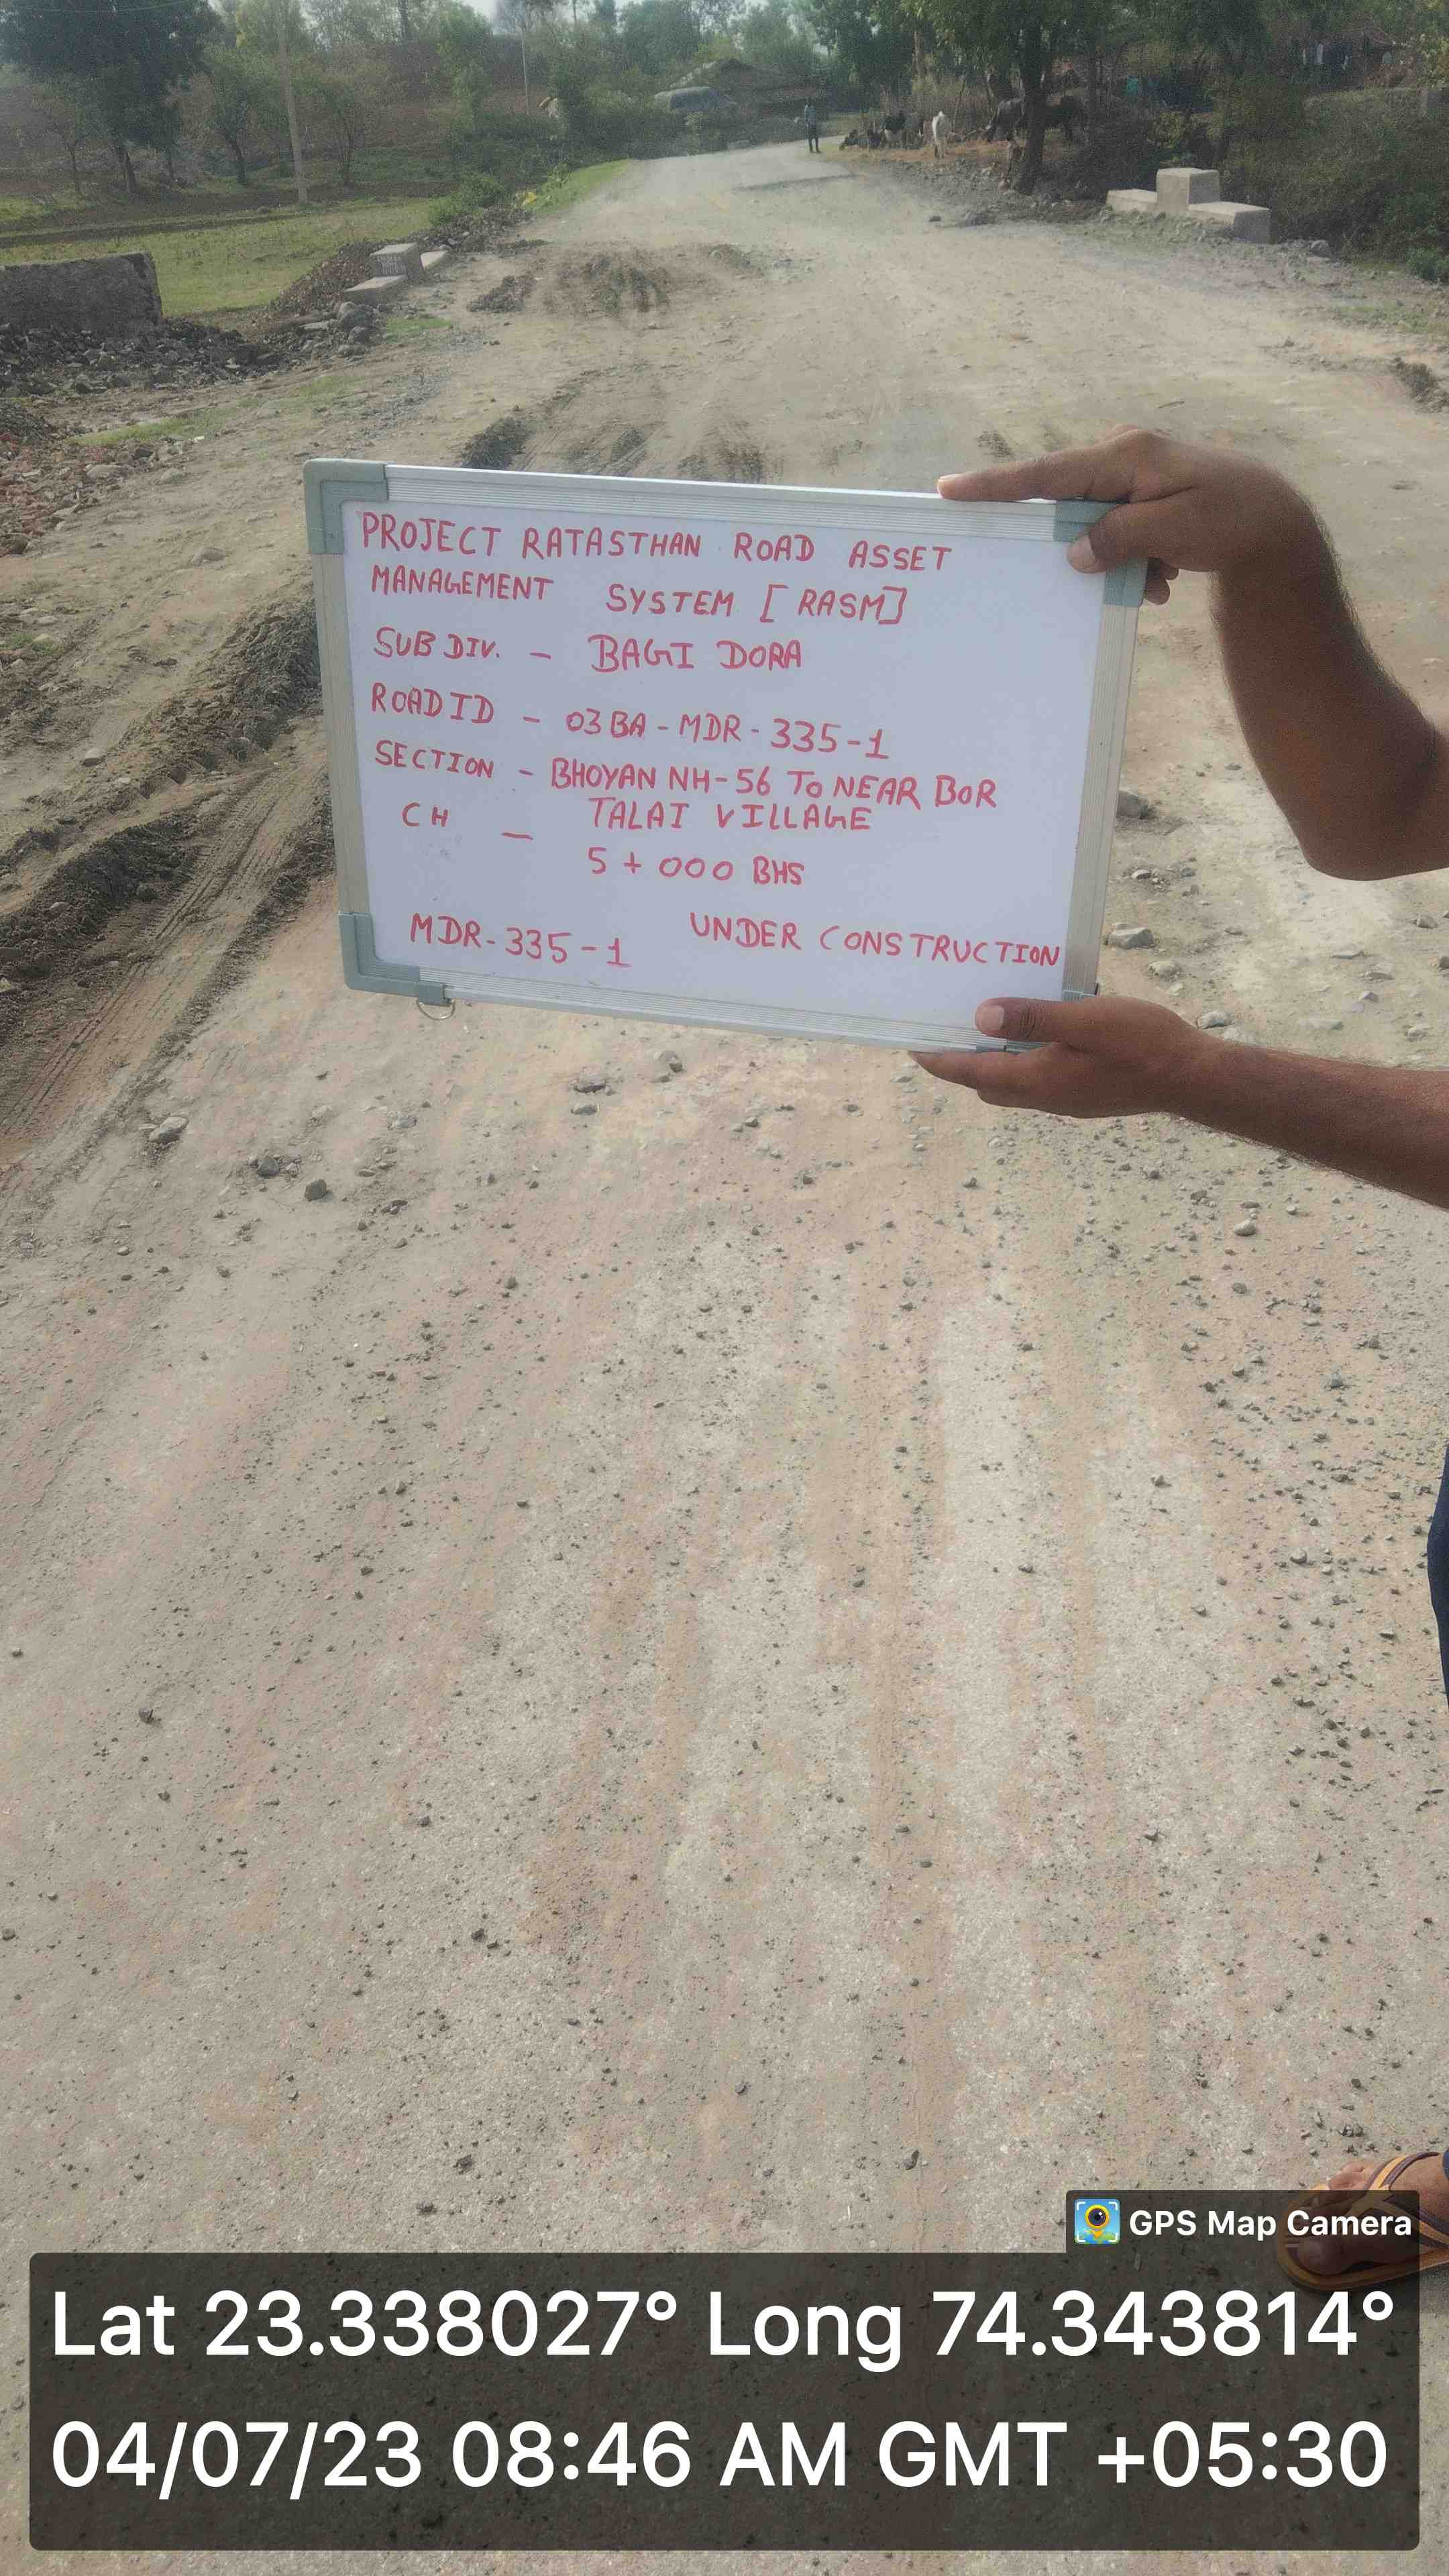 PROJECT RATASTHAN ROAD ASSET
MANAGEMENT SYSTEM [RASM]
SUB DIV. - BAGI DORA
ROAD ID - 03BA-MDR-335-1
SECTION - BHOYAN NH-56 TO NEAR BOR
TALAI VILLAGE
CH - 5+000 BHS
MDR-335-1 UNDER CONSTRUCTION
GPS Map Camera
Lat 23.338027° Long 74.343814°
04/07/23 08:46 AM GMT +05:30